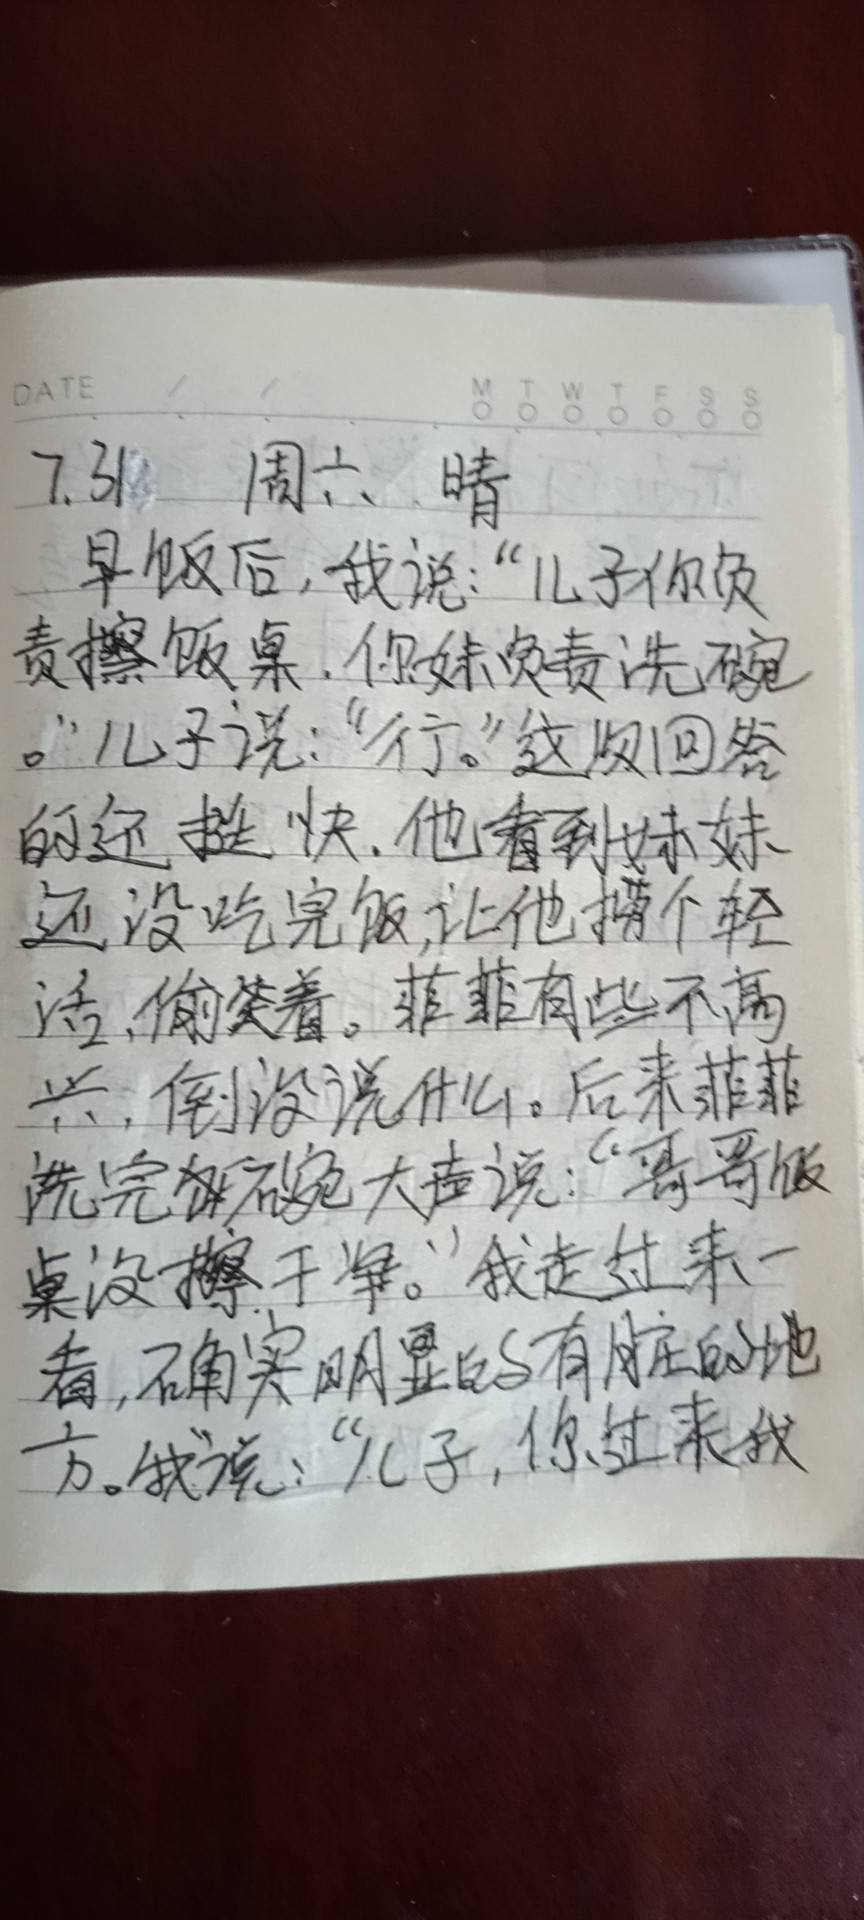 DATE / /
M T W T F S S
7.31 周六 晴
早饭后,我说:“儿子你负
责擦饭桌.你妹负责洗碗
。”儿子说:“行。”这次回答
的还挺快.他看到妹妹
还没吃完饭,让他捞个轻
活,偷笑着。菲菲有些不高
兴,倒没说什么。后来菲菲
洗完碗大声说:“哥哥饭
桌没擦干净。”我走过来一
看,确实明显的有脏的地
方。我说:“儿子,你过来我